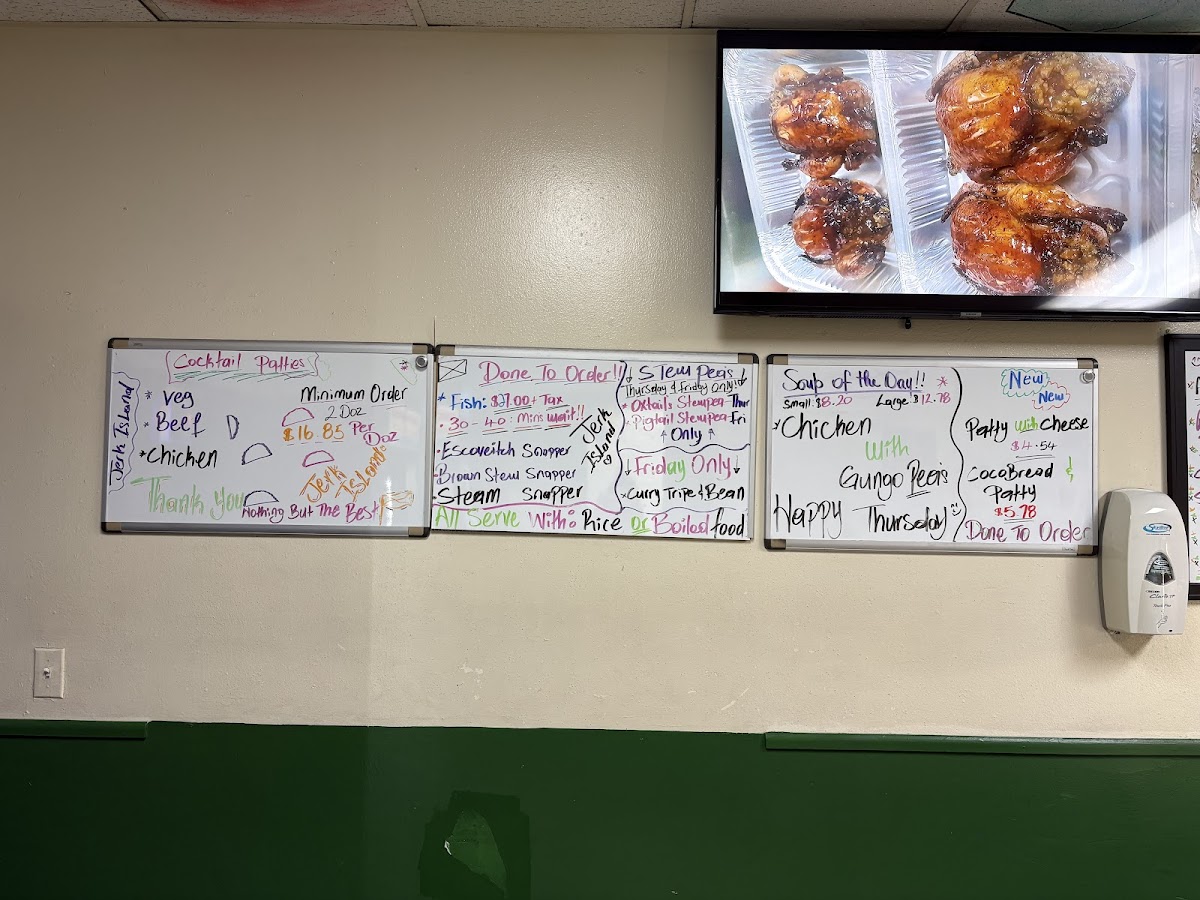 Cocktail Patties
Jerk Island
* Veg
* Beef
* Chicken
Minimum Order
2 Doz
$16.85 Per Doz
Jerk Island:
Thank You
Nothing But The Best!
Done To Order!!
* Fish: $27.00 + Tax
• 30 - 40: Mins wait!!
• Escoveitch Snapper
• Brown Stew Snapper
• Steam Snapper
Jerk Island
All Serve With: Rice or Boiled food
Stew Peas
Thursday & Friday Only!!
* Oxtails Stewpea - Thur
* Pigtail Stewpea - Fri
↑ Only ↑
↓ Friday Only ↓
* Curry Tripe & Bean
Soup of the Day!! *
Small: $8.20 Large: $12.78
* Chicken
With
Gungo Peas
Happy Thursday
New
New
Patty with Cheese
$4.54
CocoBread &
Patty
$5.78
Done To Order